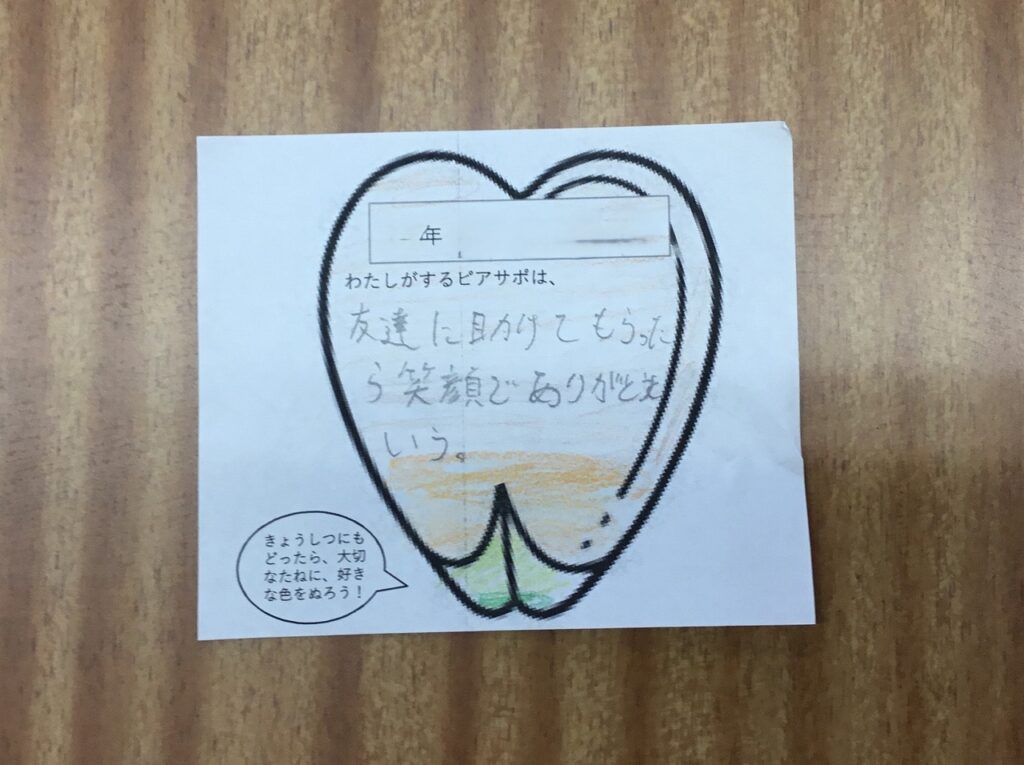 年
わたしがするピアサポは、
友達に助けてもらった
ら笑顔でありがとを
いう。
きょうしつにも
どったら、大切
なたねに、好き
な色をぬろう！